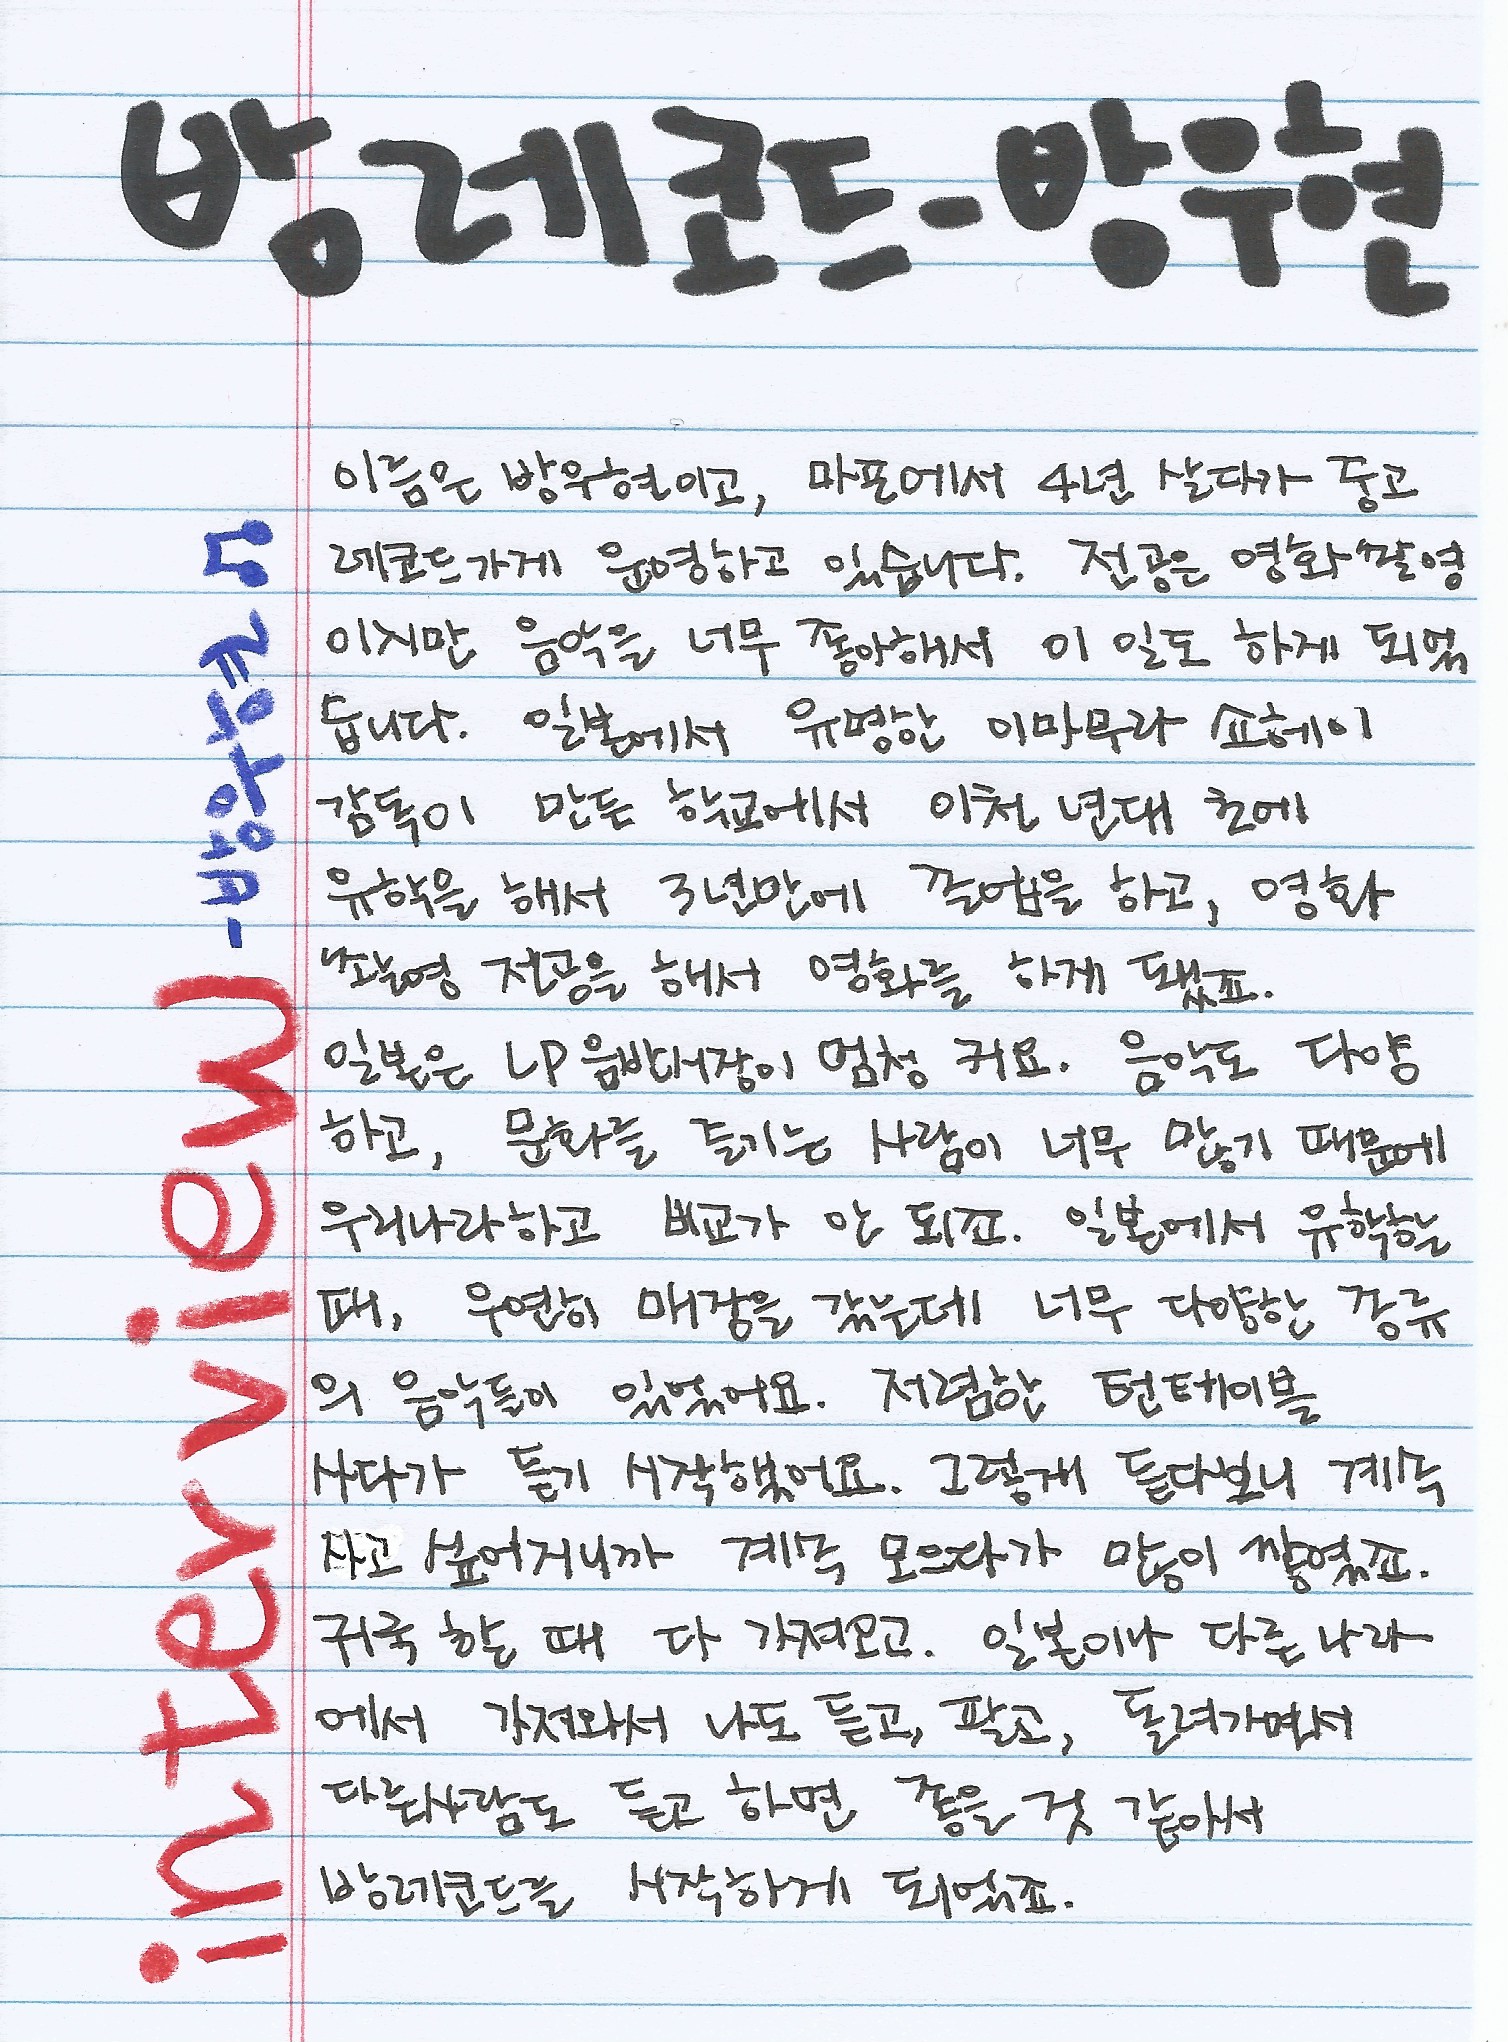 방레코드-방우현
interview -방우현 ♫
이름은 방우현이고, 마포에서 4년 살다가 중고
레코드가게 운영하고 있습니다. 전공은 영화촬영
이지만 음악을 너무 좋아해서 이 일도 하게 되었
습니다. 일본에서 유명한 이마무라 쇼헤이
감독이 만든 학교에서 이천 년대 초에
유학을 해서 3년만에 졸업을 하고, 영화
촬영 전공을 해서 영화를 하게 됐죠.
일본은 LP음반시장이 엄청 커요. 음악도 다양
하고, 문화를 즐기는 사람이 너무 많기 때문에
우리나라하고 비교가 안 되죠. 일본에서 유학할
때, 우연히 매장을 갔는데 너무 다양한 종류
의 음악들이 있었어요. 저렴한 턴테이블
사다가 듣기 시작했어요. 그렇게 듣다보니 계속
사고 싶어지니까 계속 모으다가 많이 쌓였죠.
귀국 할 때 다 가져오고. 일본이나 다른나라
에서 가져와서 나도 듣고, 팔고, 돌려가면서
다른사람도 듣고 하면 좋을 것 같아서
방레코드를 시작하게 되었죠.